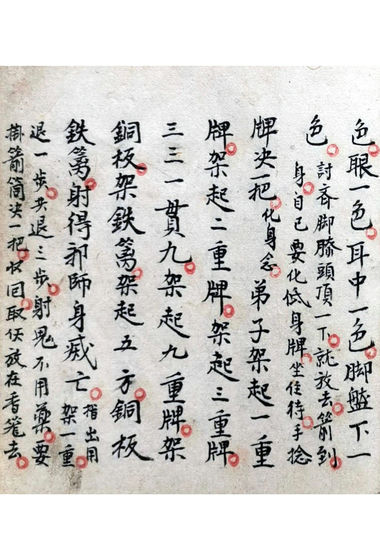 色眼一色耳中一色脚盤下一
色
討斉脚膝頭頂一下就放去箭到
身自己要化低身牌坐住待手捻
牌决一把化身念弟子架起一重
牌架起二重牌架起三重牌
三三一貫九架起九重牌架
銅板架鉄篱架起五方銅板
鉄篱射得邪師身烕亡
指出用
架一重
退一步步退三步射鬼不用藥要
掛箭筒决一把收回取伏放在香篭去